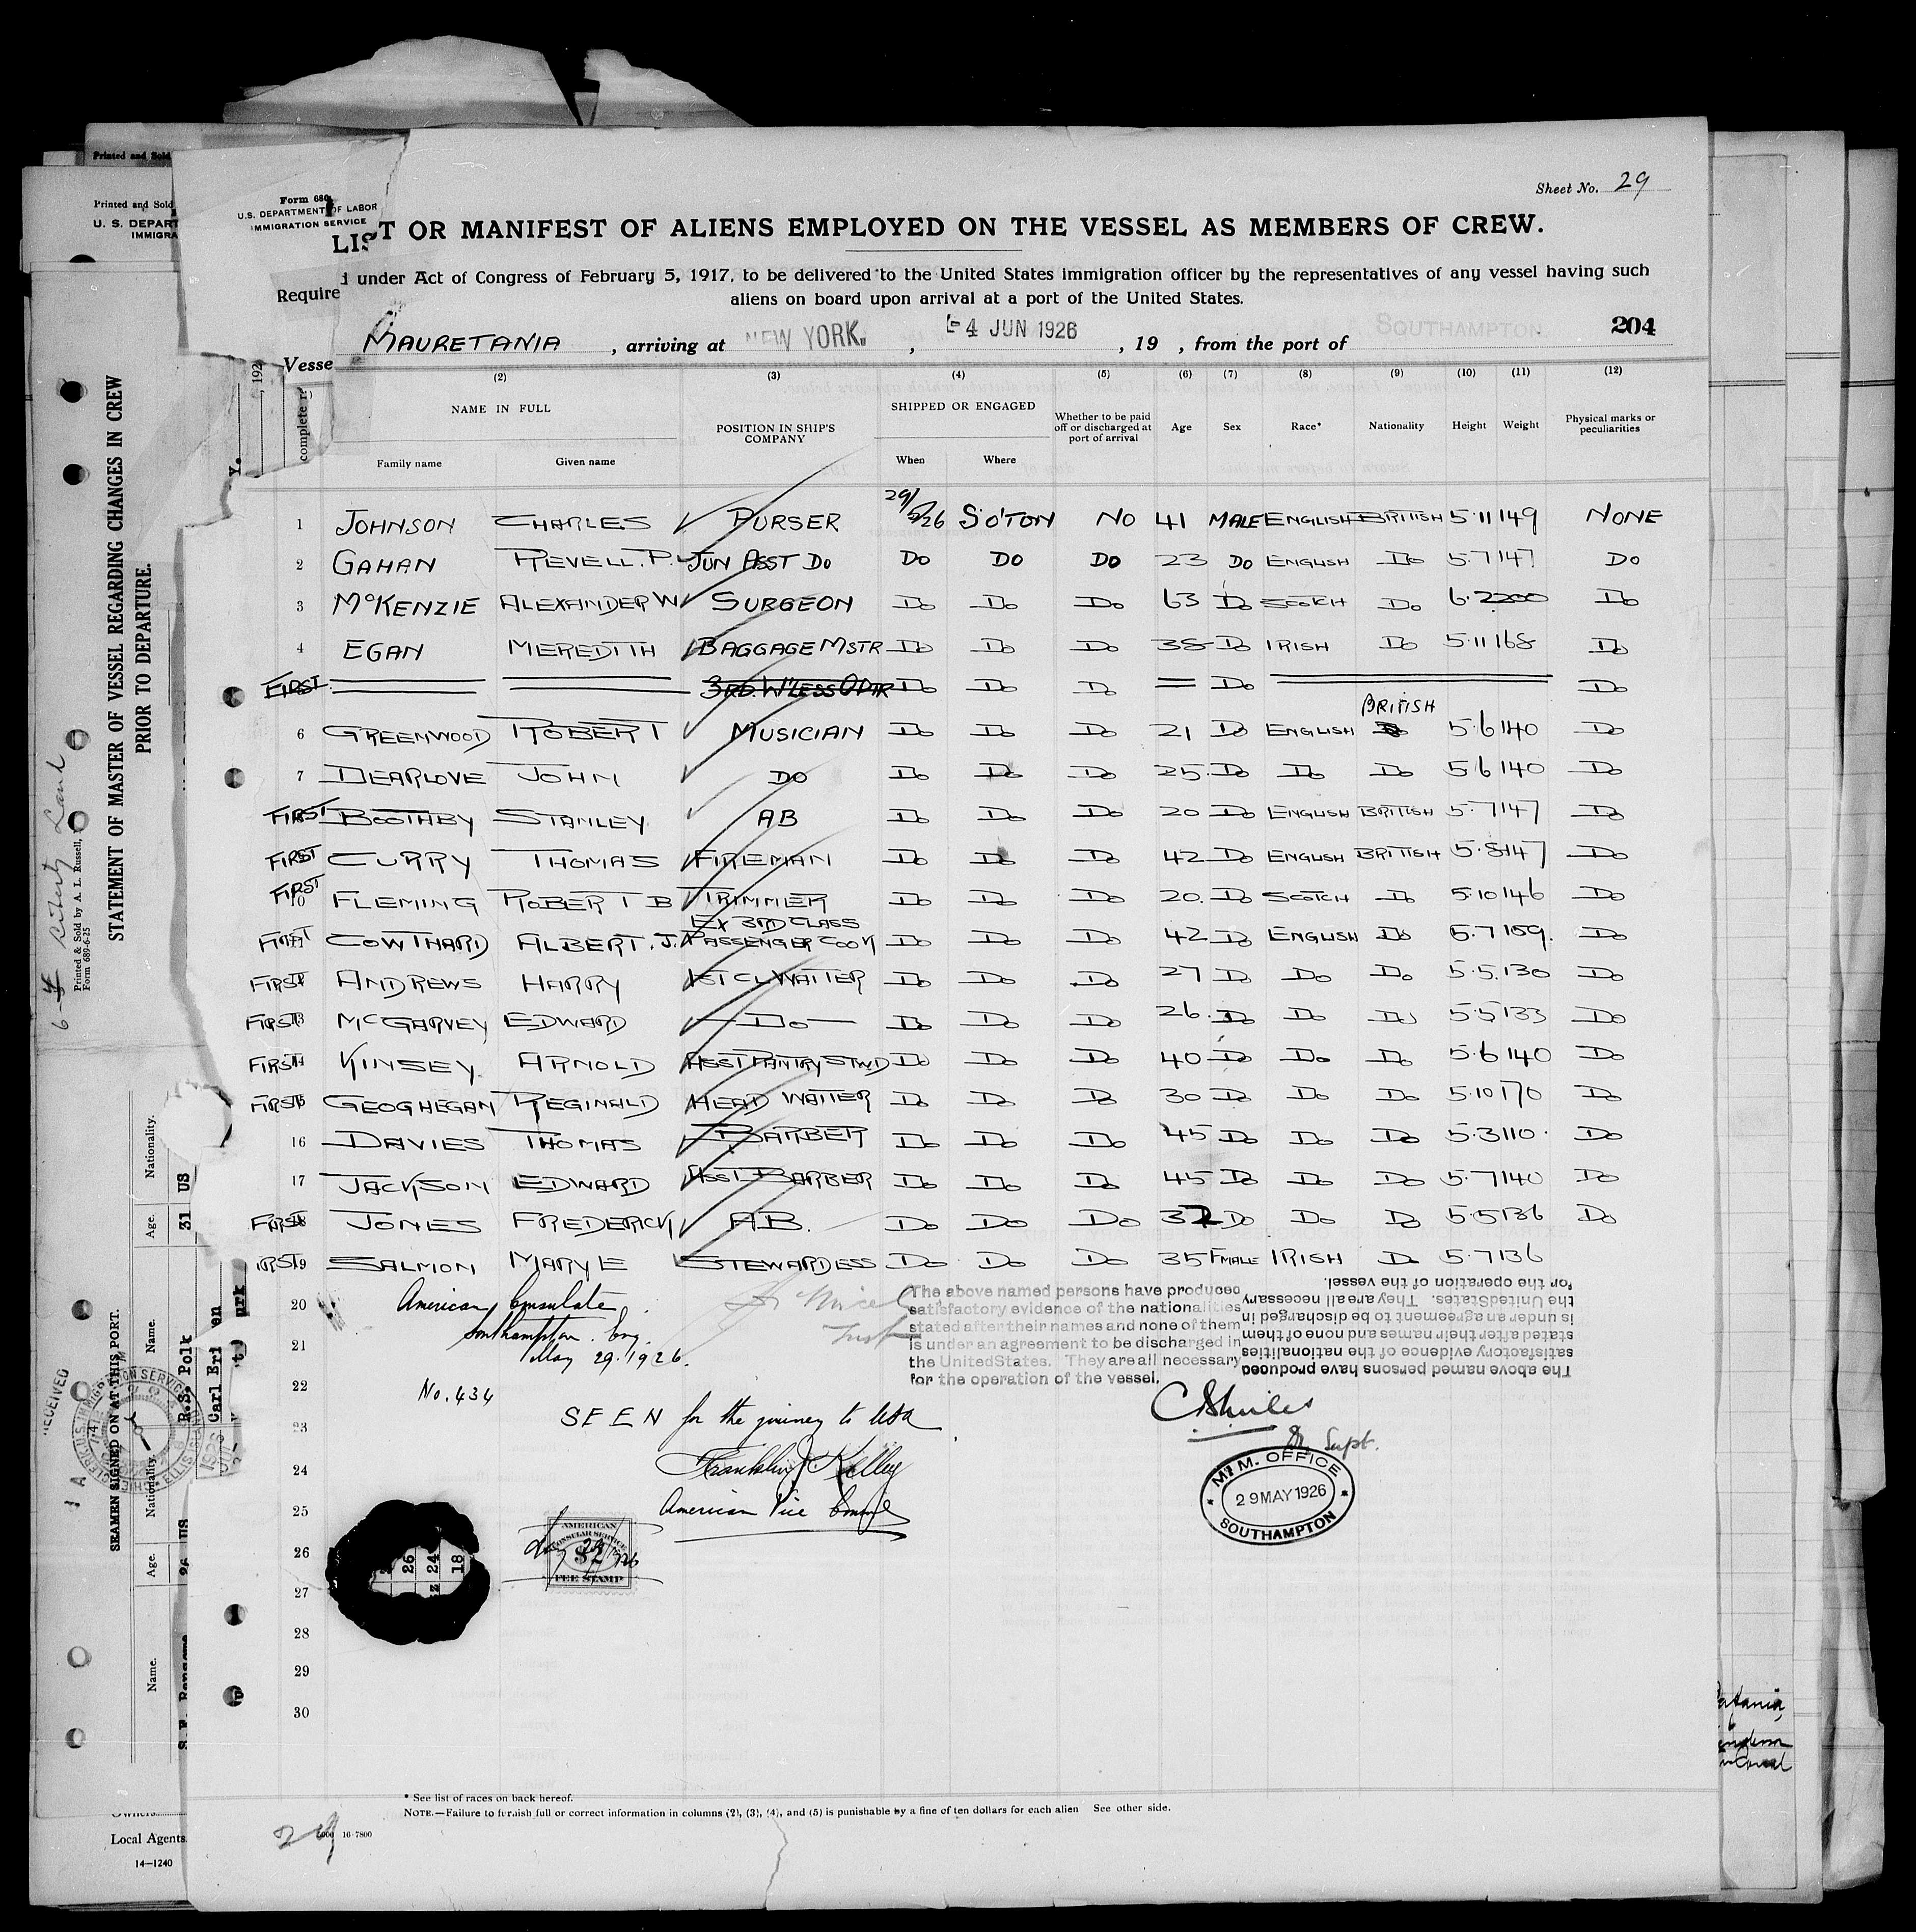 Sheet No. 29
Form 680
U.S. DEPARTMENT OF LABOR
IMMIGRATION SERVICE
LIST OR MANIFEST OF ALIENS EMPLOYED ON THE VESSEL AS MEMBERS OF CREW.
Required under Act of Congress of February 5, 1917, to be delivered to the United States immigration officer by the representatives of any vessel having such
aliens on board upon arrival at a port of the United States.
Vesse MAURETANIA, arriving at NEW YORK, 4 JUN 1926, 19 , from the port of SOUTHAMPTON
204
(2) (3) (4) (5) (6) (7) (8) (9) (10) (11) (12)
NAME IN FULL POSITION IN SHIP'S COMPANY SHIPPED OR ENGAGED Whether to be paid off or discharged at port of arrival Age Sex Race* Nationality Height Weight Physical marks or peculiarities
Family name Given name When Where
1 JOHNSON CHARLES PURSER 29/5/26 S'O'TON NO 41 MALE ENGLISH BRITISH 5·11 149 NONE
2 GAHAN REVELL. P. JUN ASST DO DO DO DO 23 DO ENGLISH DO 5·7 147 DO
3 McKENZIE ALEXANDER W SURGEON DO DO DO 63 DO SCOTCH DO 6·2 200 DO
4 EGAN MEREDITH BAGGAGE MSTR DO DO DO 38 DO IRISH DO 5·11 168 DO
FIRST 3RD. W'LESS OPTR DO DO DO DO DO
6 GREENWOOD ROBERT MUSICIAN DO DO DO 21 DO ENGLISH BRITISH 5·6 140 DO
7 DEARLOVE JOHN DO DO DO DO 25 DO DO DO 5·6 140 DO
FIRST BOOTHBY STANLEY AB DO DO DO 20 DO ENGLISH BRITISH 5·7 147 DO
FIRST CURRY THOMAS FIREMAN DO DO DO 42 DO ENGLISH BRITISH 5·8 147 DO
FIRST 10 FLEMING ROBERT B TRIMMER DO DO DO 20 DO SCOTCH DO 5·10 146 DO
FIRST 11 COWTHARD ALBERT. J. EX 3RD CLASS PASSENGER COOK DO DO DO 42 DO ENGLISH DO 5·7 159 DO
FIRST 12 ANDREWS HARRY 1ST CL WAITER DO DO DO 27 DO DO DO 5·5 130 DO
FIRST 13 McGARVEY EDWARD DO DO DO DO 26 DO DO DO 5·5 133 DO
FIRST 14 KINSEY ARNOLD ASST PANTRY STWD DO DO DO 40 DO DO DO 5·6 140 DO
FIRST 15 GEOGHEGAN REGINALD HEAD WAITER DO DO DO 30 DO DO DO 5·10 170 DO
16 DAVIES THOMAS BARBER DO DO DO 45 DO DO DO 5·3 110 DO
17 JACKSON EDWARD ASST BARBER DO DO DO 45 DO DO DO 5·7 140 DO
FIRST 18 JONES FREDERICK A.B. DO DO DO 32 DO DO DO 5·5 136 DO
FIRST 19 SALMON MARY E STEWARDESS DO DO DO 35 FMALE IRISH DO 5·7 136
20 American Consulate
21 Southampton. Eng.
May 29. 1926.
The above named persons have produced
satisfactory evidence of the nationalities
stated after their names and none of them
is under an agreement to be discharged in
the United States. They are all necessary
for the operation of the vessel.
The above named persons have produced
satisfactory evidence of the nationalities
stated after their names and none of them
is under an agreement to be discharged in
the United States. They are all necessary
for the operation of the vessel.
22 No. 434
23 SEEN for the journey to USA
24 Franklin J. Kelley
25 American Vice Consul
Supt.
M. M. OFFICE
29 MAY 1926
SOUTHAMPTON
AMERICAN
CONSULAR SERVICE
$2
FEE STAMP
26
27
28
29
30
26
24
18
* See list of races on back hereof.
NOTE.—Failure to furnish full or correct information in columns (2), (3), (4), and (5) is punishable by a fine of ten dollars for each alien See other side.
29
16-7800
Printed and Sold
Printed and Sold
U. S. DEPART
IMMIGRA
STATEMENT OF MASTER OF VESSEL REGARDING CHANGES IN CREW
PRIOR TO DEPARTURE.
Printed & Sold by A. L. Russell,
Form 689-6-25
SEAMEN SIGNED ON AT THIS PORT.
Name. Age. Nationality. Name. Age. Nationality.
26 US R.S. Polk 31 US
Carl Eri
RECEIVED
Local Agents
14—1240